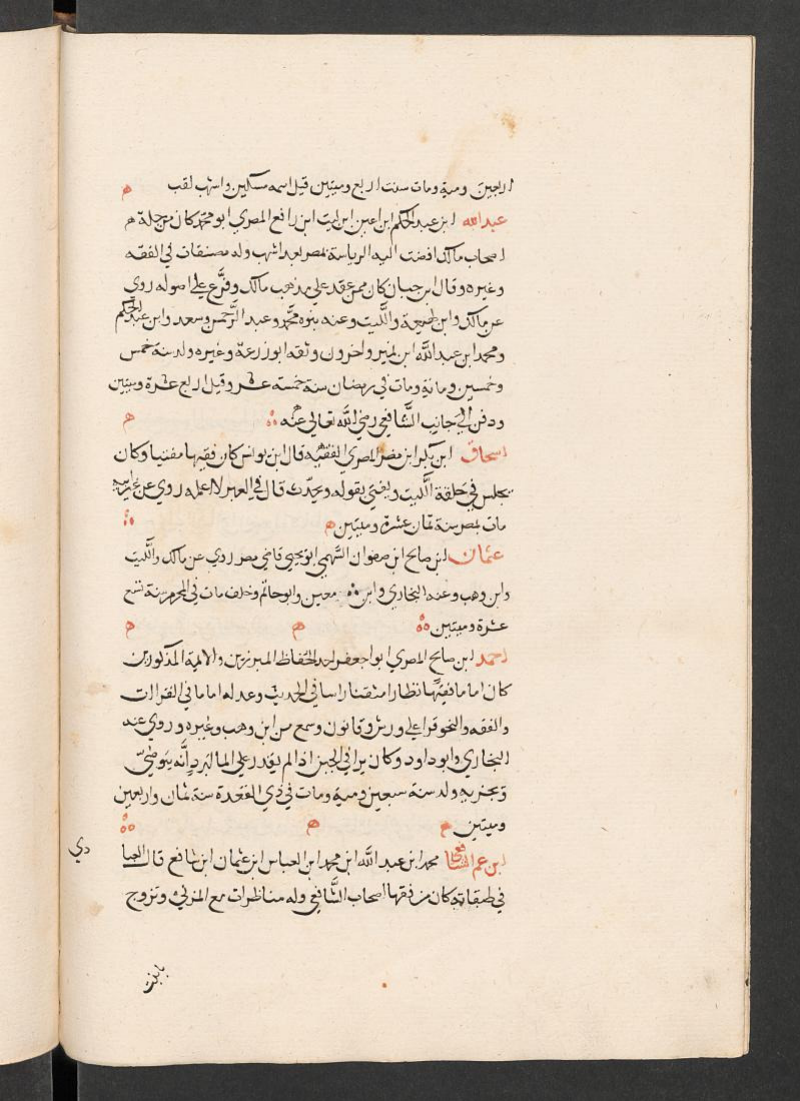 اربعين ومية ومات سنت اربع وميتين قيل اسمه مسكين واشهب لقب ه
عبد الله ابن عبد الحكم ابن اعين ابن ليث ابن رافع المصري ابو محمد كان من جلة ه
اصحاب مالك افضت اليه الرياسة بمصر بعد اشهب وله مصنفات في الفقه
وغيره وقال ابن حبان كان ممن عقد علي مذهب مالك وفرَّع علي اصوله روي
عن مالك وابن لهيعة والَّليث وعنه بنوه محمَّد وعبد الرَّحمن وسعد وابن عبد الحكم
ومحمد ابن عبد اللَّه ابن نمير واخرون وثقه ابو زرعة وغيره ولد سنة خمس
وخمسين وماية ومات في رمضان سنة خمسة عشر وقيل اربع عشرة وميتين
ودفن الي جانب الشَّافعي رضي اللَّه تعالي عنه ه
اسحاق ابن بكر ابن مضر المصري الفقيه قال ابن يونس كان فقيها مفتيا وكان
يجلس في حلقة الَّليث ويفتي بقوله ويحدث قال في العبر لا اعمله روي عن غير ابيه
مات بمصر سنة ثمان عشرة وميتين ه
عثمان ابن صالح ابن صفوان السَّهمي ابو يحيي قاضي مصر روي عن مالك والَّليث
وابن وهب وعنه البخاري وابن معين وابو حاتم وخلف مات في المحرم سنة تسع
عشرة وميتين ه ه ه
احمد ابن صالح المصري ابو اجعفر احد الحفاظ المبرزين والايمة المذكورين
كان اماما فقيها نظارا متقنا راسا في الحديث وعلله اماما في القراات
والفقه والنحو قرا علي ورش وقانون وسمع من ابن وهب وغيره وروي عنه
البخاري وابو داود وكان يرا في الجبن اذا لم يقدر علي الما البرد انَّه يتوضَّي
ويجزيه ولد سنة سبعين ومية ومات في ذي القعدة سنة ثمان واربعين
وميتين ه ه ه
ابن عم الشافعي محمد ابن عبد اللَّه ابن محمد ابن العباس ابن عثمان ابن شافع قال العبا
دي
في طبقاته كان من فقها اصحاب الشَّافعي وله مناظرات مع المزني وتزوج
بابنت